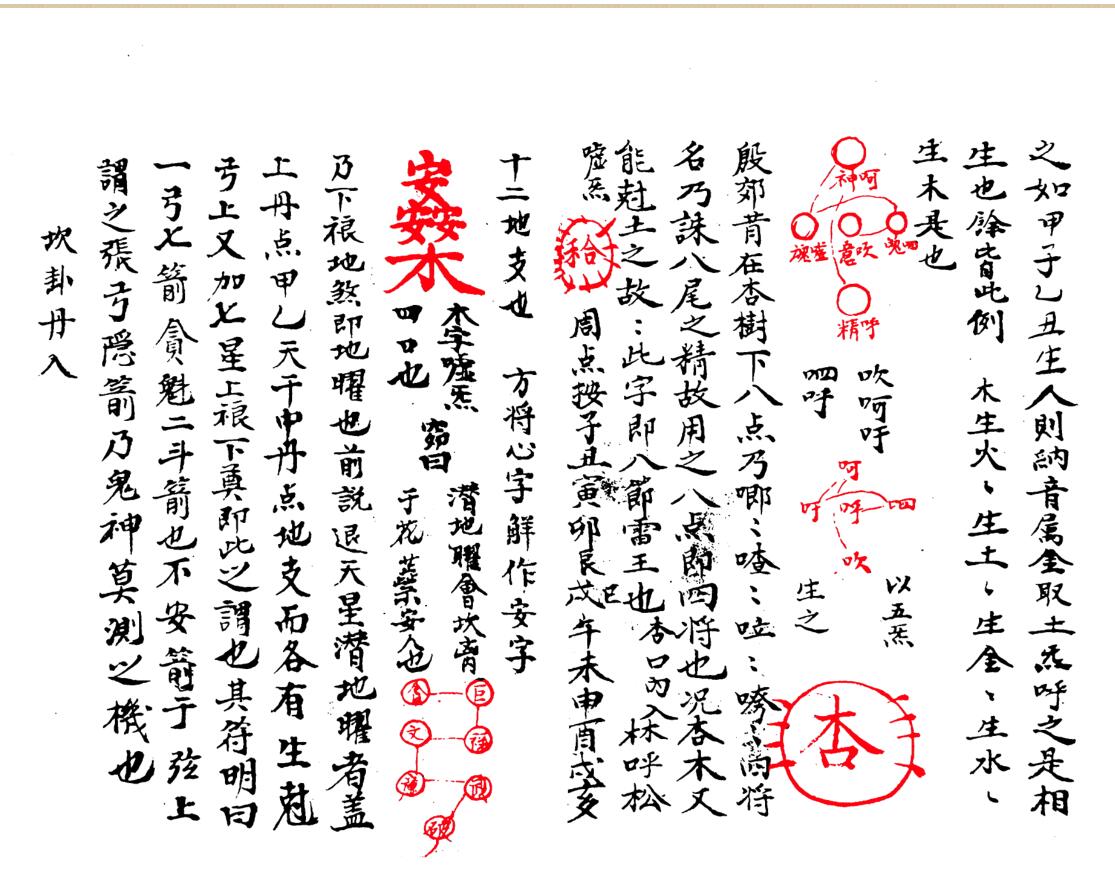 之如甲子乙丑生人則納音属金取土炁呼之是相
生也餘皆此例 木生火〻生土〻生金〻生水〻
生木是也
神呵
魂嘘
意吹
鬼呬
精呼
吹呵吁
呬呼
呵
吁 呼 呬
吹
以五炁
生之
杏
殷郊昔在杏樹下八点乃唧〻喳〻呍〻嘮〻两将
名乃誅八尾之精故用之八点即四将也况杏木又
能尅土之故:此字即八節雷王也 杏口内入林呼松
嘘炁
周点按子丑寅卯辰巳戊午未申酉戌亥
十二地支也 方将心字解作安字
安安安木
木字嘘炁
四口也
竅曰
潜地曜會坎
于花蘂安人也
巨
貪
禄
文
武
破
乃下裉地煞即地曜也前説退天星潜地曜者盖
上丹点甲乙天干中丹点地支而各有生尅
弓上又加七星上裉下奠即此之謂也其符明曰
一弓七箭貪魁二斗箭也不安箭于弦上
謂之張弓隠箭乃鬼神莫測之機也
坎卦丹入